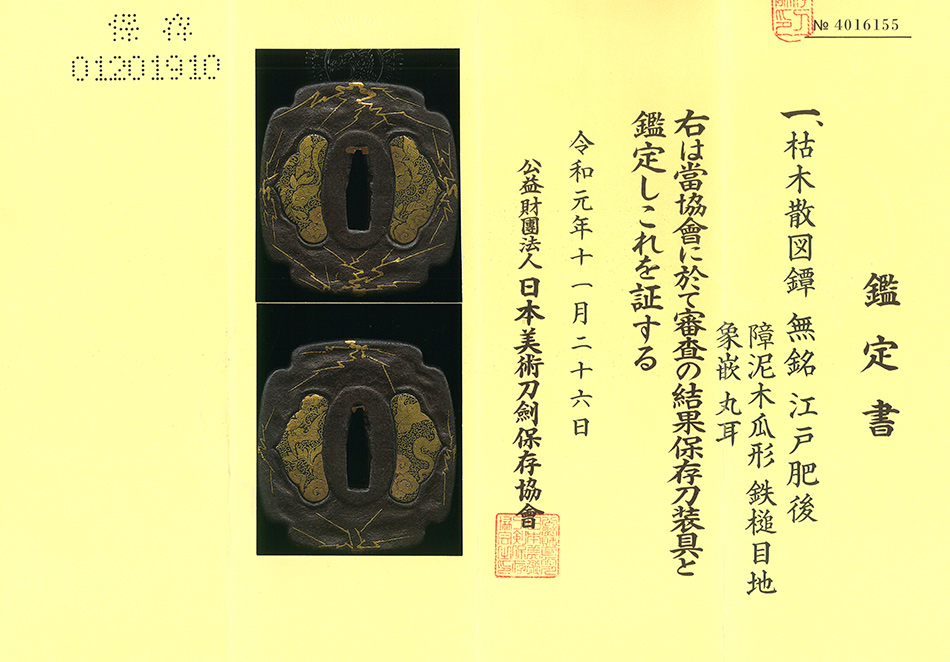 № 4016155
鑑定書
一、枯木散図鐔 無銘 江戸肥後
障泥木瓜形 鉄槌目地
象嵌 丸耳
右は當協會に於て審査の結果保存刀装具と
鑑定しこれを証する
令和元年十一月二十六日
公益財團法人 日本美術刀劍保存協會
保存
01201910